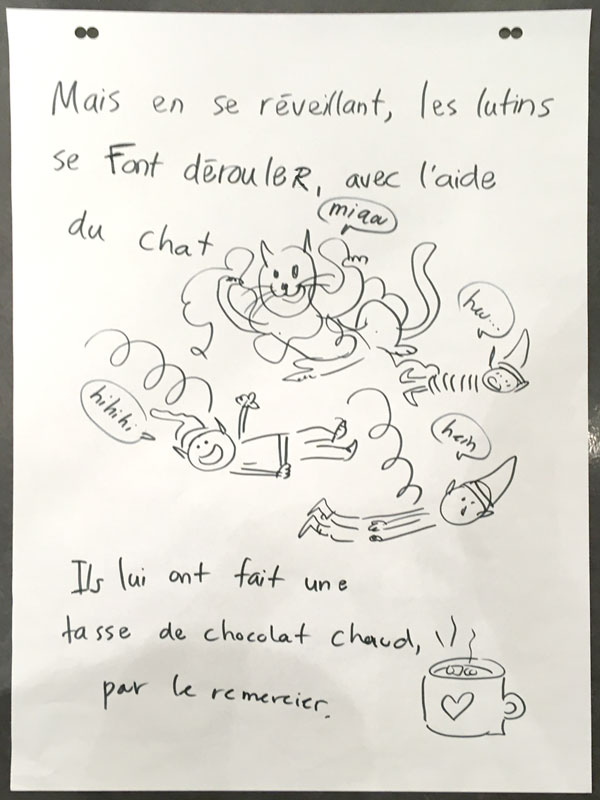 Mais en se réveillant, les lutins
se Font dérouleR, avec l'aide
du chat
miaou
ha...
hihihi
hein
Ils lui ont fait une
tasse de chocolat chaud,
par le remercier.